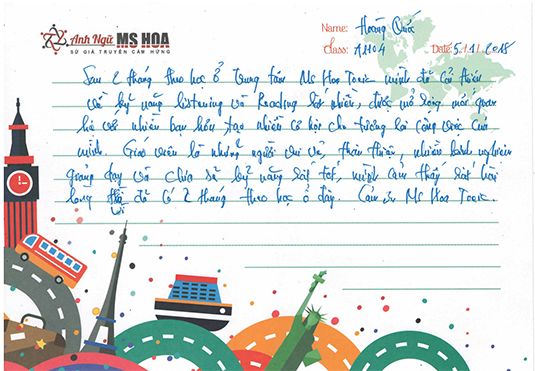 Anh Ngữ MS HOA
SỨ GIẢ TRUYỀN CẢM HỨNG
Name: Hoàng Quốc
Class: A1104 Date: 5/1/2018
Sau 2 tháng theo học ở trung tâm Ms Hoa Toeic mình đã cải thiện
về kỹ năng listening và Reading rất nhiều, được mở rộng mối quan
hệ với nhiều bạn hữu, tạo nhiều cơ hội cho tương lai công việc của
mình. Giáo viên là những người vui vẻ, thân thiện, nhiều kinh nghiệm
giảng dạy và chia sẻ kỹ năng rất tốt, mình cảm thấy rất hài
lòng với đã có 2 tháng theo học ở đây. Cảm ơn Ms Hoa Toeic.